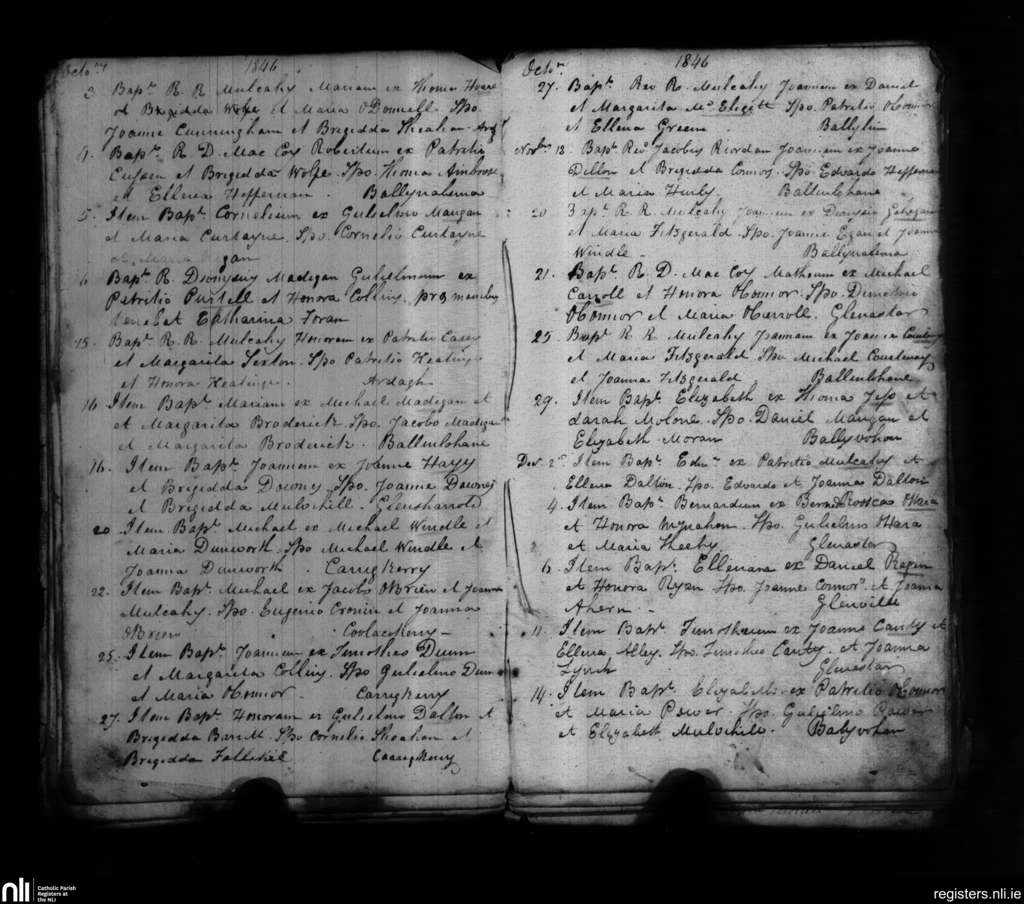 Octo. 1846
3 Bapt. R. R. Mulcahy Mariam ex Thoma
et Brigidda Wolfe et Maria ODonnell. Spo.
Joanne Cunningham et Brigidda Sheahan
4. Bapt. R. D. Mac Coy Robertum ex Patritio
et Brigidda Wolfe. Spo. Thoma Ambrose
et Ellena Heffernan. Ballynalema
5. Item Bapt. Cornelium ex Gulielmo Mangan
et Maria Curtayne. Spo. Cornelio Curtayne
et Maria
6 Bapt. R. Dionysius Madigan Gulielmum ex
Patritio Purtell et Honora Collins.
et Catharina Foran
15. Bapt. R. R. Mulcahy Honoram ex Patritio Casey
et Margarita Sexton. Spo Patritio Keating
et Honora Keating. Ardagh
16 Item Bapt. Mariam ex Michael Madigan et
et Margarita Broderick. Spo. Jacobo Madigan
et Margarita Broderick. Ballinlohane
16. Item Bapt. Joannem ex Joanne Hayes
et Brigidda Downey. Spo. Joanne Downey
et Brigidda Mulvihill. Glensharrold
20. Item Bapt. Michael ex Michael Windle et
Maria Dunworth. Spo Michael Windle et
Joanna Dunworth. Carrigkerry
22. Item Bapt. Michael ex Jacobo OBrien et Joanna
Mulcahy. Spo. Eugenio Cronin et Joanna
OBrien Coolacokerry
25. Item Bapt. Joannem ex Timotheo Dunn
et Margarita Collins. Spo Gulielmo Dunn
et Maria OConnor. Carrigkerry
27. Item Bapt. Honoram ex Gulielmo Dalton et
Brigidda Barrett. Spo Cornelio Sheahan et
Brigidda
Octo. 1846
27. Bapt. Rev R. Mulcahy Joannem ex Daniel
et Margarita Mc Eligott. Spo. Patritio OConnor
et Ellena Greene.
Novbr. 13. Bapt. Rev. Jacobus Riordan Joannem ex Joanne
Dillon et Brigidda Connors. Spo. Edvardo Heffernan
et Maria Ballinlohane
20 Bapt. R. R. Mulcahy Joannem ex Dionysio
et Maria Fitzgerald. Spo. Joanne Egan et Joanna
Windle. Ballynalema
21. Bapt. R. D. Mac Coy Matheum ex Michael
Carroll et Honora OConnor. Spo. Dimetrio
OConnor et Maria OCarroll. Glenastar
25. Bapt. R R. Mulcahy Joannam ex Joanne
et Maria Fitzgerald. Spo. Michael Courtenay
et Joanna Fitzgerald Ballinlohane
29. Item Bapt. Elizabeth ex Thoma et
Sarah Molone. Spo. Daniel Mangan et
Elizabeth Moran Ballyvohan
Der. 2. Item Bapt. Edm. ex Patritio Mulcahy et
Ellena Dalton. Spo. Edvardo et Joanna Dalton
4. Item Bapt. Bernardum ex OHara
et Honora Mynahan. Spo. Gulielmo OHara
et Maria Sheehy. Glenastar
6. Item Bapt. Ellenara ex Daniel
et Honora Ryan. Spo. Joanne Connor. et Joanna
Ahern. Glenville
11. Item Bapt. Timotheum ex Joanne Canty et
Ellena Alley. Spo. Timotheo Canty. et Joanna
Lynch Glenastar
14. Item Bapt. Elizabeth ex Patritio OConnor
et Maria Power. Spo. Gulielmo Power
et Elizabeth Mulvihill. Balyvohan
nli Catholic Parish
Registers at
the NLI
registers.nli.ie